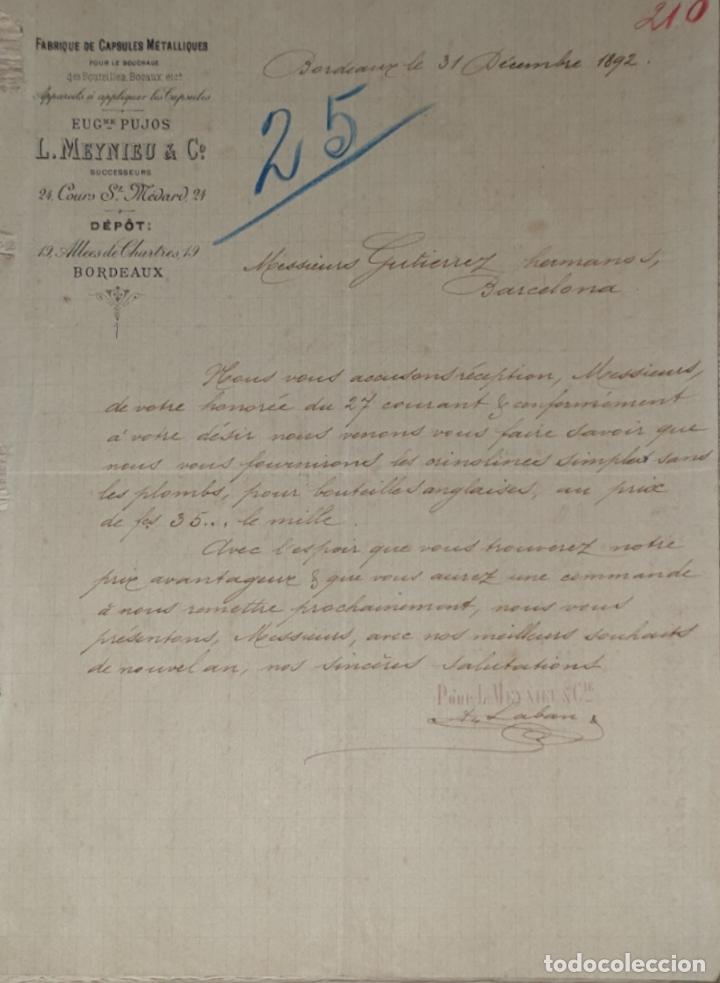 210
FABRIQUE DE CAPSULES MÉTALLIQUES
POUR LE BOUCHAGE
des Bouteilles, Bocaux, etc.
Appareils à appliquer les Capsules
EUG^NE PUJOS
L. MEYNIEU & C^O
SUCCESSEURS
24, Cours S^t. Médard, 24
DÉPÔT:
19, Allées de Chartres, 19
BORDEAUX
Bordeaux le 31 Décembre 1892.
25
Messieurs Gutierrez hermanos,
Barcelona
Nous vous accusons réception, Messieurs,
de votre honorée du 27 courant & conformément
à votre désir nous venons vous faire savoir que
nous vous fournirons les crinolines simples sans
les plombs, pour bouteilles anglaises, au prix
de fcs 35... le mille.
Avec l'espoir que vous trouverez notre
prix avantageux & que vous aurez une commande
à nous remettre prochainement, nous vous
présentons, Messieurs, avec nos meilleurs souhaits
de nouvel an, nos sincères salutations
Pour L. MEYNIEU & C^IE
Laban
todocoleccion